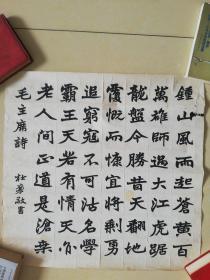 鍾山風雨起蒼黃百
萬雄師過大江虎踞
龍盤今勝昔天翻地
覆慨而慷宜將剩勇
追窮寇不可沽名學
霸王天若有情天亦
老人間正道是滄桒
毛主席詩
杜
書